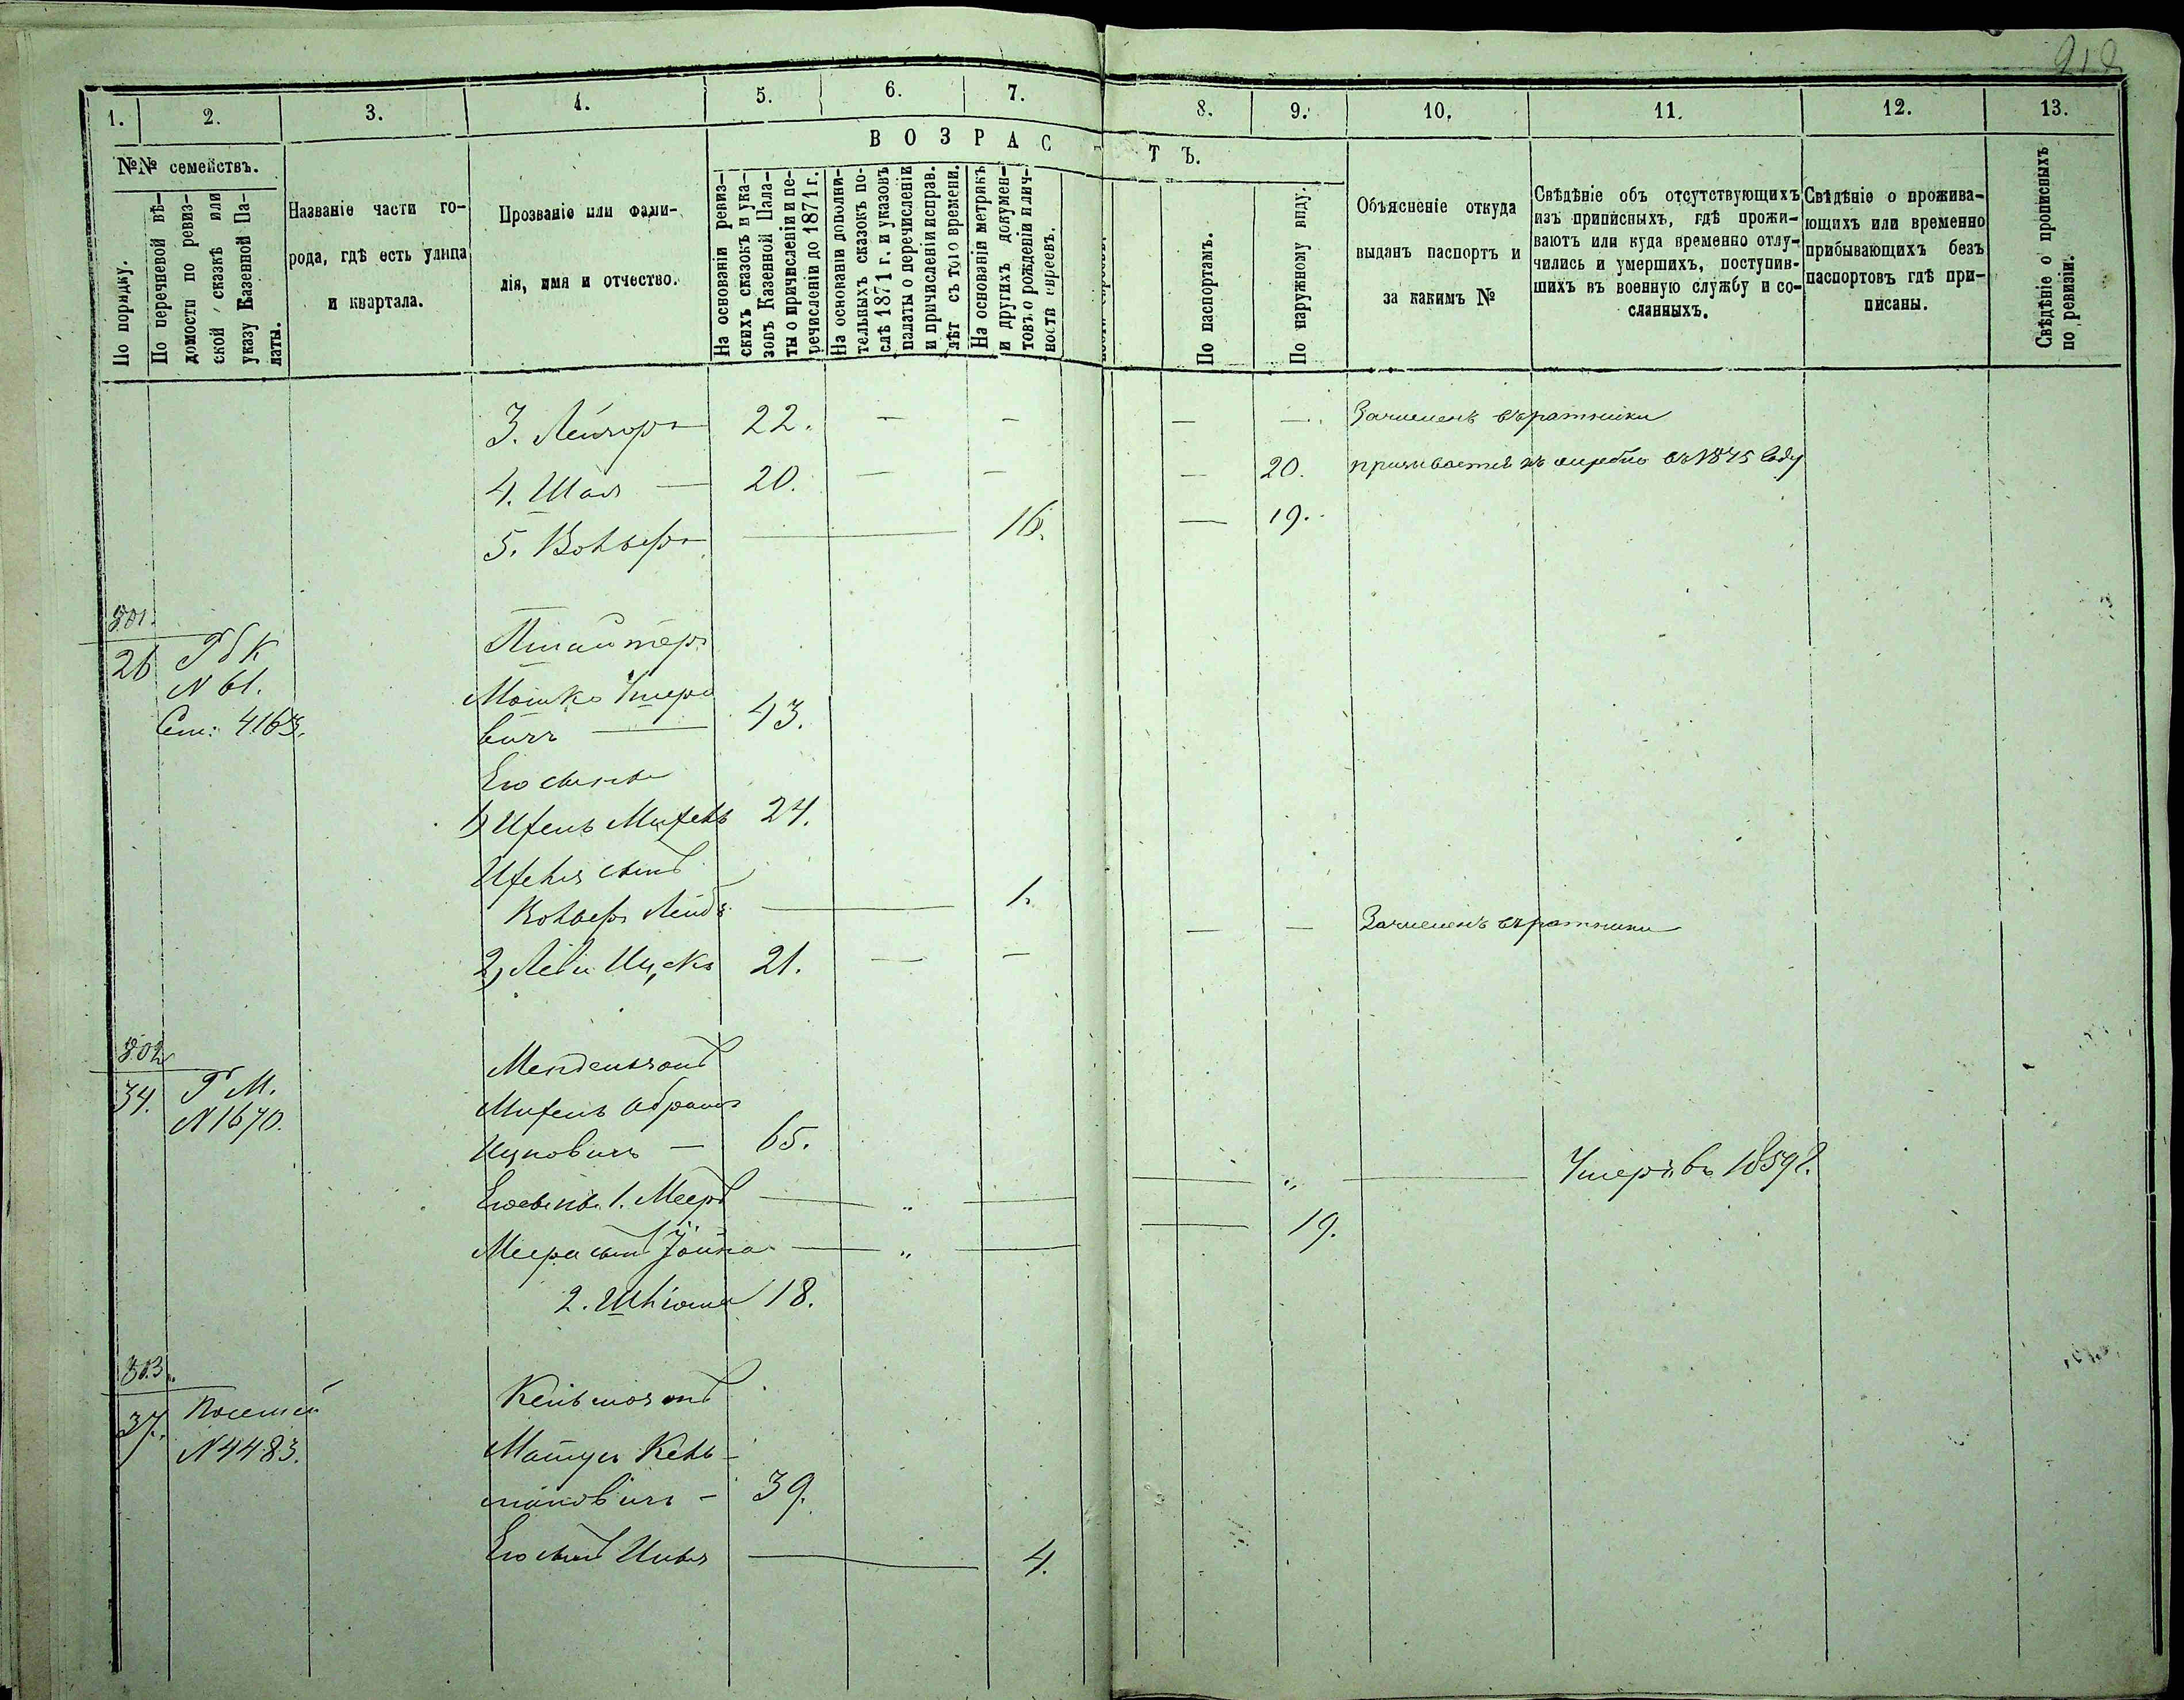 1. 2. 3. 4. 5. 6. 7. 8. 9. 10. 11. 12. 13.
№№ семействъ.
По порядку.
По перечневой вѣ-
домости по ревиз-
ской сказкѣ или
указу Казенной Па-
латы.
Названіе части го-
рода, гдѣ есть улица
и квартала.
Прозваніе или фами-
лія, имя и отчество.
ВОЗРАСТЪ.
На основаніи ревиз-
скихъ сказокъ и ука-
зовъ Казенной Пала-
ты о причисленіи и пе-
речисленіи до 1871 г.
На основаніи дополни-
тельныхъ сказокъ по-
слѣ 1871 г. и указовъ
палаты о перечисленіи
и причисленіи исправ.
лѣт съ того времени.
На основаніи метрикъ
и другихъ докумен-
товъ о рожденіи и лич-
ности евреевъ.
По паспортамъ.
По наружному виду.
Объясненіе откуда
выданъ паспортъ и
за какимъ №
Свѣдѣніе объ отсутствующихъ
изъ приписныхъ, гдѣ прожи-
ваютъ или куда временно отлу-
чились и умершихъ, поступив-
шихъ въ военную службу и со-
сланныхъ.
Свѣдѣніе о прожива-
ющихъ или временно
прибывающихъ безъ
паспортовъ гдѣ при-
писаны.
Свѣдѣніе о прописныхъ
по ревизіи.
3. Лейзоръ 22. — — — — Зачисленъ въ ратники
4. Шая — 20. — — — 20. призывается къ жребію въ 1875 году
5. Вольфъ — 16. — 19.
801.
26 Р б К
N 61.
4163.
Мошко
вичъ — 43.
Его сыновья
1) Ихель Михель 24.
Ихеля сынъ
Вольфъ Лейбъ — 1.
2) Леви Ицекъ 21. — — — — Зачисленъ въ ратники
802
34. Р М.
N 1670.
Мендельзонъ
Михель Абрамъ
Ицковичъ — 65.
Его сынов. 1. Мееръ — „ — — „ — Умеръ въ 1859 г.
Меера сынъ Іойна — „ — — 19.
2. Шліома 18.
803.
37.
N 4483.
Кельмозонъ
Матусъ Кель-
мановичъ — 39.
Его сынъ — 4.